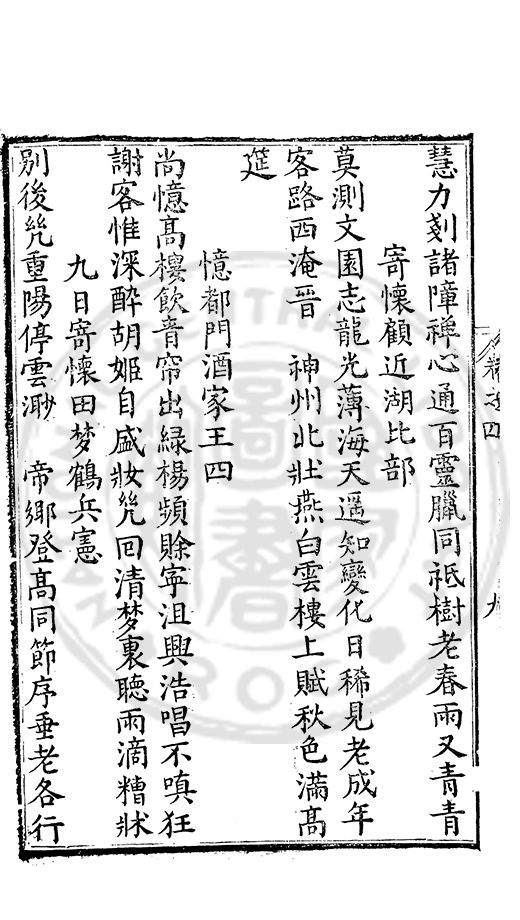 慧力剗諸障禪心通百靈臘同祇樹老春雨又青青
寄懷顧近湖比部
莫測文園志龍光薄海天遥知變化日稀見老成年
客路西淹晉　神州北壯燕白雲樓上賦秋色滿高
筵
憶都門酒家王四
尚憶高樓飲青帘出緑楊頻賒寜沮興浩唱不嗔狂
謝客惟深酔胡姬自盛妝㡬回清梦裏聽雨滴糟牀
九日寄懷田梦鶴兵憲
别後㡬重陽停雲渺　帝鄉登高同節序垂老各行
卷之四
九